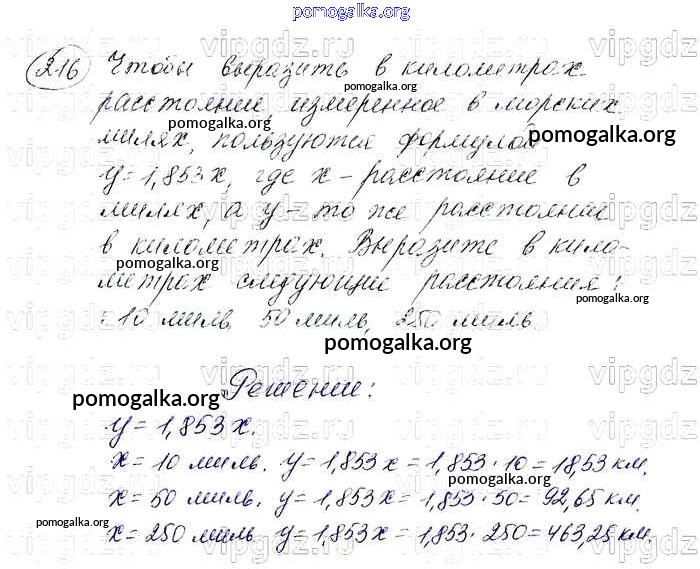 pomogalka.org
216 Чтобы выразить в километрах
расстояние, измеренное в морских
pomogalka.org
милях, пользуются формулой
pomogalka.org
y=1,853x, где x – расстояние в
милях, а y – то же расстояние
в километрах. Выразите в кило-
pomogalka.org
метрах следующие расстояния:
pomogalka.org
: 10 миль, 50 миль, 250 миль.
pomogalka.org
Решение:
pomogalka.org
y=1,853x.
x=10 миль. y=1,853x=1,853·10=18,53 км.
x=50 миль. y=1,853x=1,853·50=92,65 км.
pomogalka.org
x=250 миль. y=1,853x=1,853·250=463,25 км.
pomogalka.org
vipgdz.ru